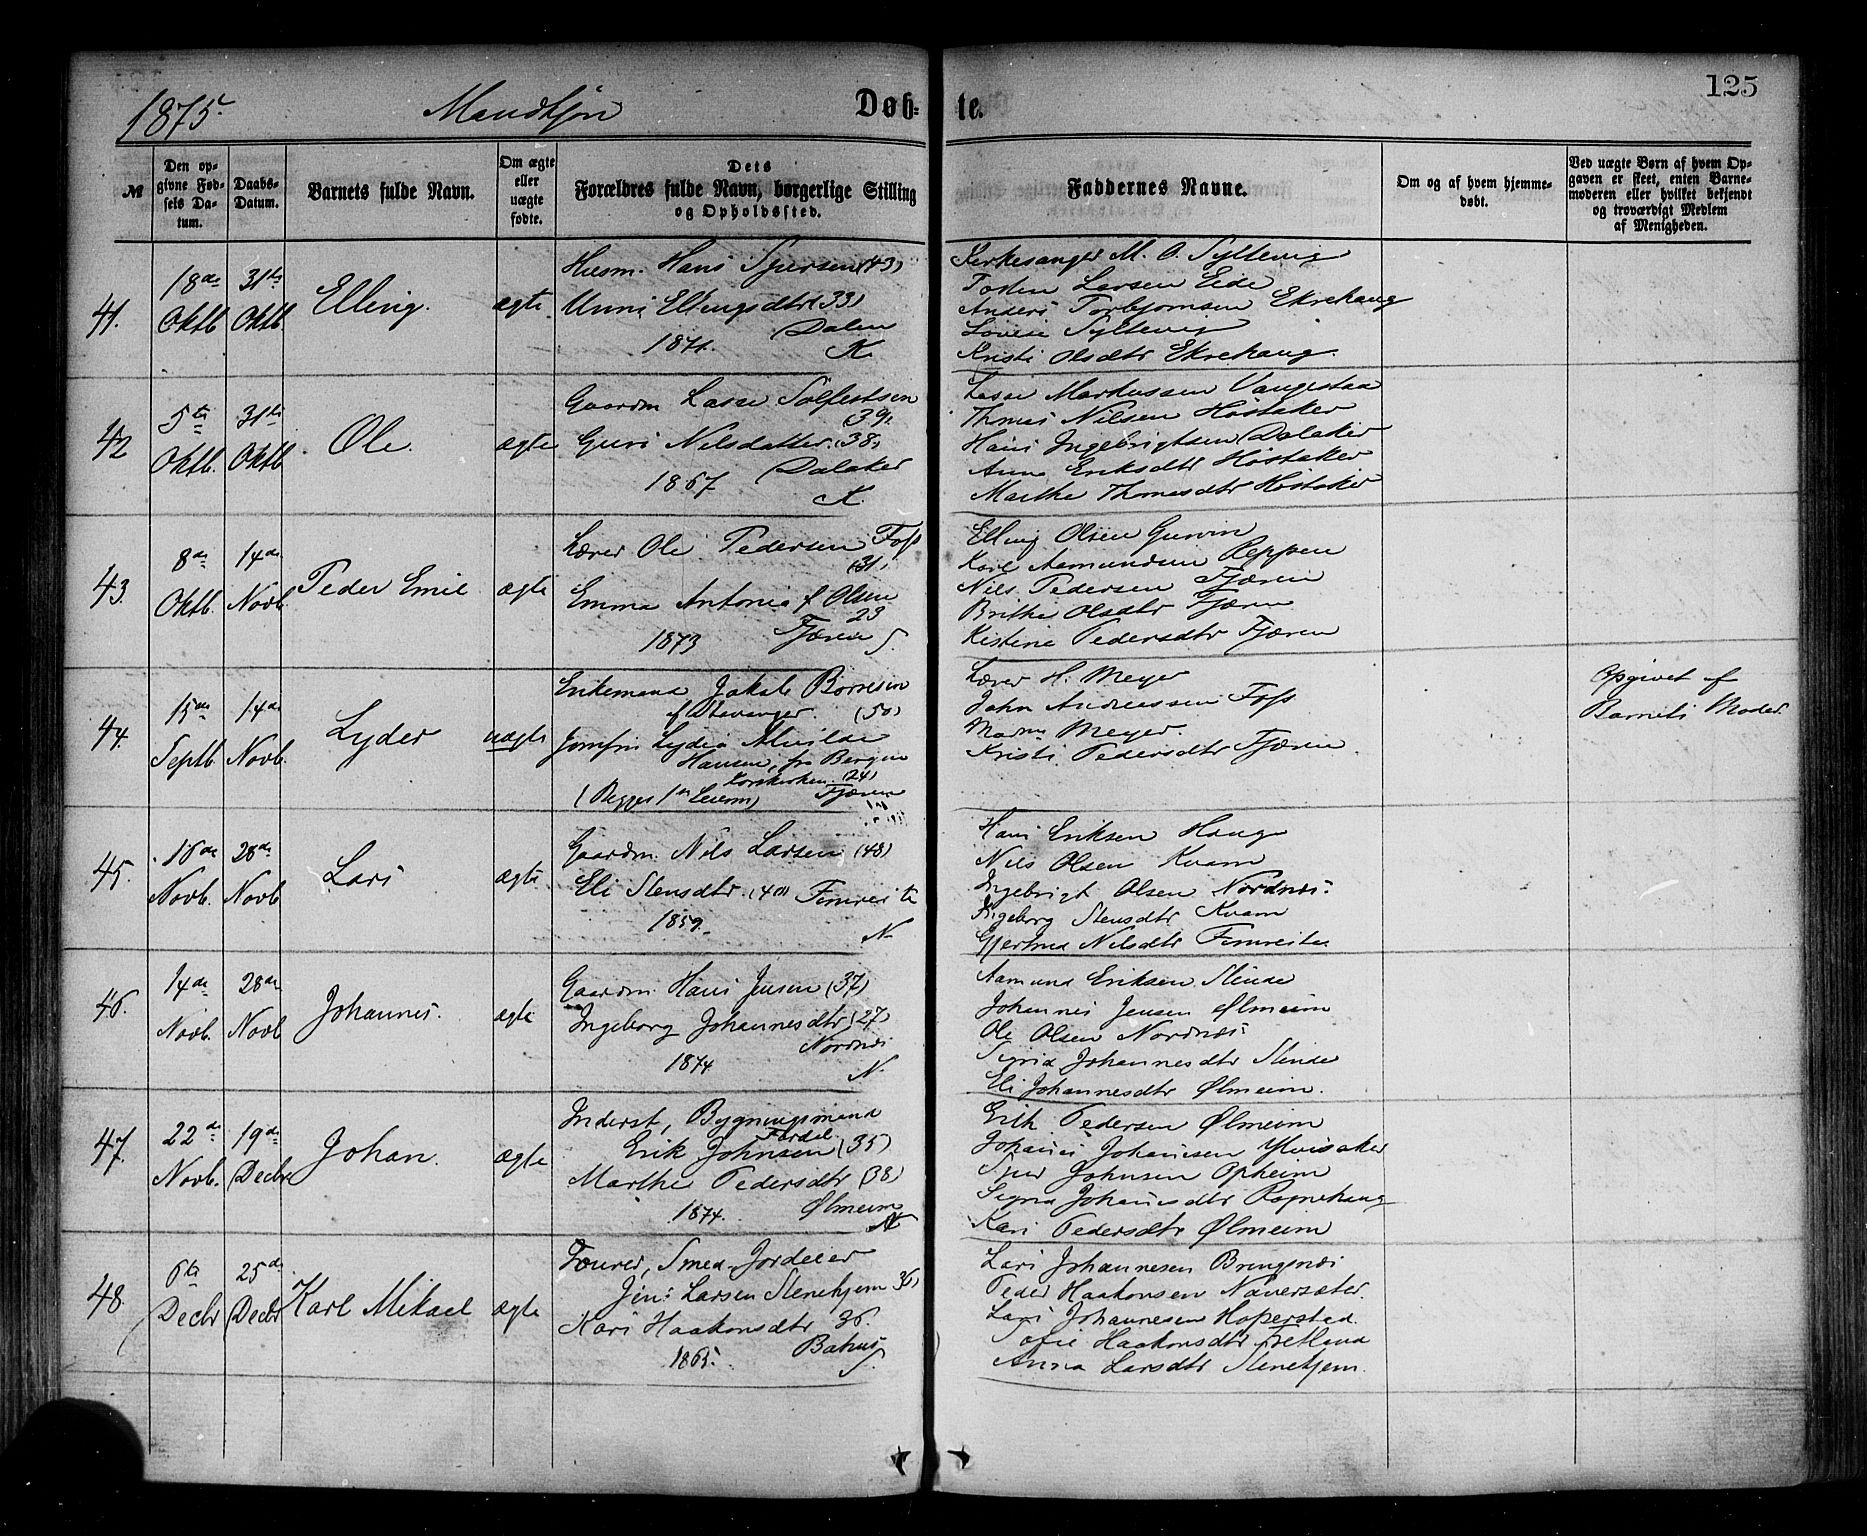 125
1875. Mandkjøn Døb- te.
№
Den op-
givne Fød-
sels Da-
tum.
Daabs-
Datum.
Barnets fulde Navn.
Om ægte
eller
uægte
fødte.
Dets
Forældres fulde Navn, borgerlige Stilling
og Opholdssted.
Faddernes Navne.
Om og af hvem hjemme-
døbt.
Ved uægte Børn af hvem Op-
gaven er skeet, enten Barne-
moderen eller hvilket bekjendt
og troværdigt Medlem
af Menigheden.
41.
18de
Oktb.
31te
Oktb.
Elling.
ægte
Husm. Hans Sjursen (43)
Unni Ellingsdtr (33)
Dalen
1871.
K.
Kirkesanger M. O. Syltevig
Torsten Larsen Eide
Anders Torbjørnsen Ekrehaug
Syltevig
Kristi Olsdtr Ekrehaug.
42
5te
Oktb.
31te
Oktb.
Ole.
ægte
Gaardm Lasse Solfestsen
39.
Guri Nilsdatter (38)
Dalaker
1867
K.
Lasse Markussen Vangestad
Thomas Nilsen Høstaker
Hans Ingebrigtsen Dalaker
Anna Eriksdtr Høstaker
Marthe Thomasdtr Høstaker
43.
8de
Oktb.
14de
Novb.
Peder Emil
ægte
Lærer Ole Pedersen Foss
(31)
Emma Antonia f Olsen
23
1873 Fjæren S.
Elling Olsen Gurvin
Karl Aamundsen Reppen
Nils Pedersen Fjæren
Brithe Olsdtr Fjæren
Kistine Pedersdtr Fjæren
44.
15de
Septb.
14de
Novb.
Lyder
uægte
Enkemand Jakob Børresen
af Stavanger. (50)
Jomfru Lydia Alvilde
Hansen, fra Bergen
Korskirken. (24)
(Begges 1ste Leierm) Fjæren
Lærer H. Meyer
John Andreassen Foss
Madm Meyer.
Kristi Pedersdtr Fjæren.
Opgivet af
Barnets Moder
45.
16de
Novb.
28de
Novb.
Lars
ægte
Gaardm. Nils Larsen (48)
Eli Stensdtr (40) Fimreite
1859.
N.
Hans Eriksen Hauge
Nils Olsen Kvam
Ingebrigt Olsen Nordnæs.
Ingeborg Stensdtr Kvam
Gjertrud Nilsdtr Fimreite
46.
14de
Novb.
28de
Novb
Johannes.
ægte
Gaardm. Hans Jensen (37)
Ingeborg Johannesdtr (27)
Nordnæs
1874
N.
Aamund Eriksen Slinde
Johannes Jensen Ølmeim
Ole Olsen Nordnæs
Sigrid Johannesdtr Slinde
Eli Johannesdtr Ølmeim.
47.
22de
Novb.
19de
Decbr
Johan.
ægte
Inderst, Bygningsmand
Erik Johnsen (35)
Marthe Pedersdtr (38)
1874. Ølmeim
N
Erik Pedersen Ølmeim
Johannes Johannesen Ylvisaker
Sjur Johnsen Opheim
Signa Johannesdtr Ragnehaug
Kari Pedersdtr Ølmeim
48.
6te
Decbr
25de
Decbr
Karl Mikael
ægte
Smed
Jens Larsen Stenehjem 36)
Kari Haakonsdtr 36.
1865.
S.
Lars Johannesen Bringsnæs
Peder Haakonsen Navarsæter.
Lars Johannesen Hoperstad
Sofie Haakonsdtr Fretland
Anna Larsdtr Stenehjem.